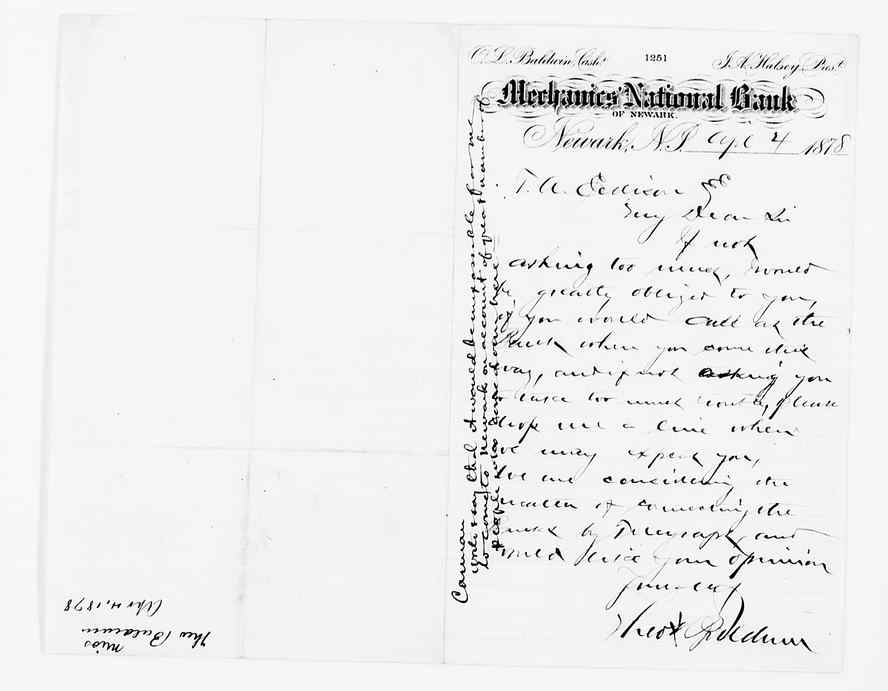 C. L. Baldwin, Cash.
1251
J. A. Halsey, Prest.
Mechanics' National Bank
OF NEWARK.
Newark, N.J. Apl 4 1878
T. A. Eddison Esq
My Dear Sir
If not
asking too much, would
be greatly obliged to you,
if you would call at the
Bank when you come this
way, and if not asking you
to take too much trouble, please
drop me a line when
we may expect you,
We are considering the
matter of connecting the
Banks by Telegraph, and
would like your opinion
Yours truly
Theo Baldwin
Carman
Write & say that it would be impossible for me
to come to Newark on account of great number of
people who come down here
Theo Baldwin
Apr 4, 1878